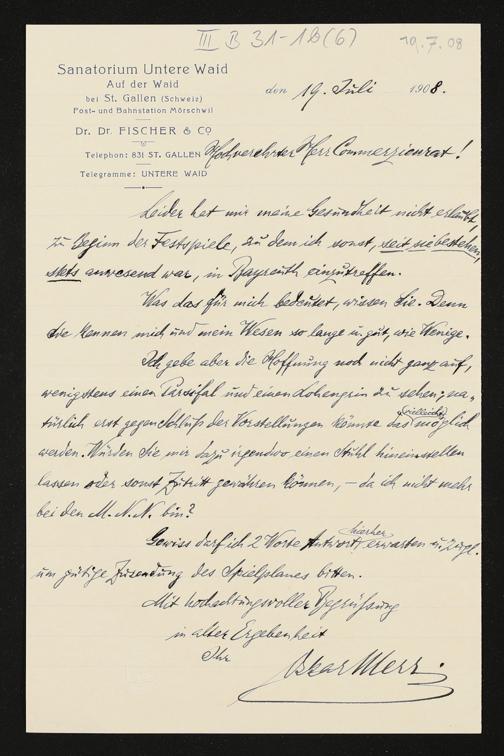 III B 31-12(6)
19.7.08
Sanatorium Untere Waid
Auf der Waid
bei St. Gallen (Schweiz)
Post- und Bahnstation Mörschwil
Dr. Dr. FISCHER & Co
Telephon: 831 ST. GALLEN
Telegramme: UNTERE WAID
den 19. Juli 1908.
Hochverehrter Herr Commerzienrat!
Leider hat mir meine Gesundheit nicht erlaubt,
zu Beginn der Festspiele, zu dem ich sonst, seit sie bestehen,
stets anwesend war, in Bayreuth einzutreffen.
Was das für mich bedeutet, wissen Sie. Denn
Sie kennen mich und mein Wesen so lange u. gut, wie Wenige.
Ich gebe aber die Hoffnung noch nicht ganz auf,
wenigstens einen Parsifal und einen Lohengrin zu sehen; na-
türlich erst gegen Schluß der Vorstellungen könnte das vielleicht möglich
werden. Würden Sie mir dazu irgendwo einen Stuhl hineinstellen
lassen oder sonst Zutritt gewähren können, – da ich nicht mehr
bei den M. N. N. bin?
Gewiss darf ich 2 Worte Antwort hierher erwarten u. zugl.
um gütige Zusendung des Spielplanes bitten.
Mit hochachtungsvoller Begrüßung
in alter Ergebenheit
Ihr
Oskar Merz.